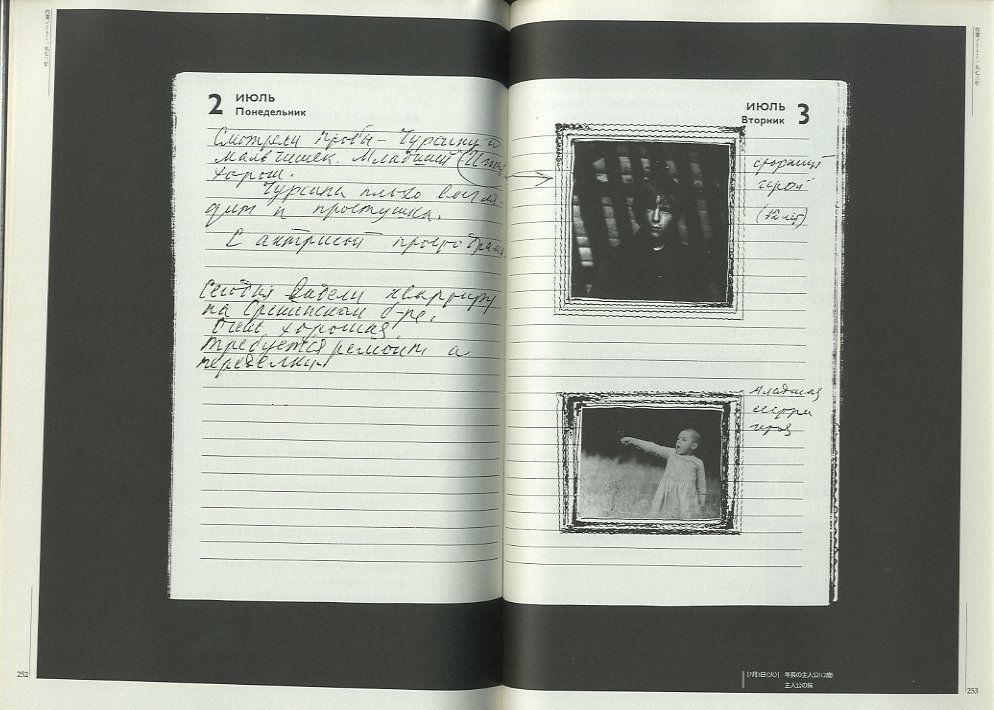 作業ノート──一九七三年
2 ИЮЛЬ
Понедельник
Смотрели пробы – Чурсину и
мальчишек. Младший
хорош.
Чурсина плохо выгля-
дит и простушка.
С актрисой просто драма
Сегодня видели квартиру
на Сретенском б-ре.
Очень хорошая,
требуется ремонт и
переделки.
252
作業ノート──一九七三年
ИЮЛЬ 3
Вторник
старший
герой
(12 лет)
младшая
сестра
героя
[7月3日(火)] 年長の主人公(12歳)
主人公の妹
253